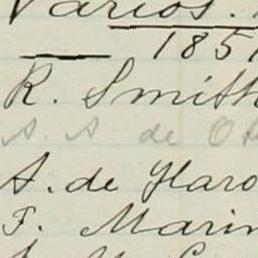 Varios.
185
R. Smith
A. A. de O
A. de Haro
F. Marin